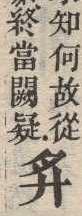 知何故從
終當闕疑